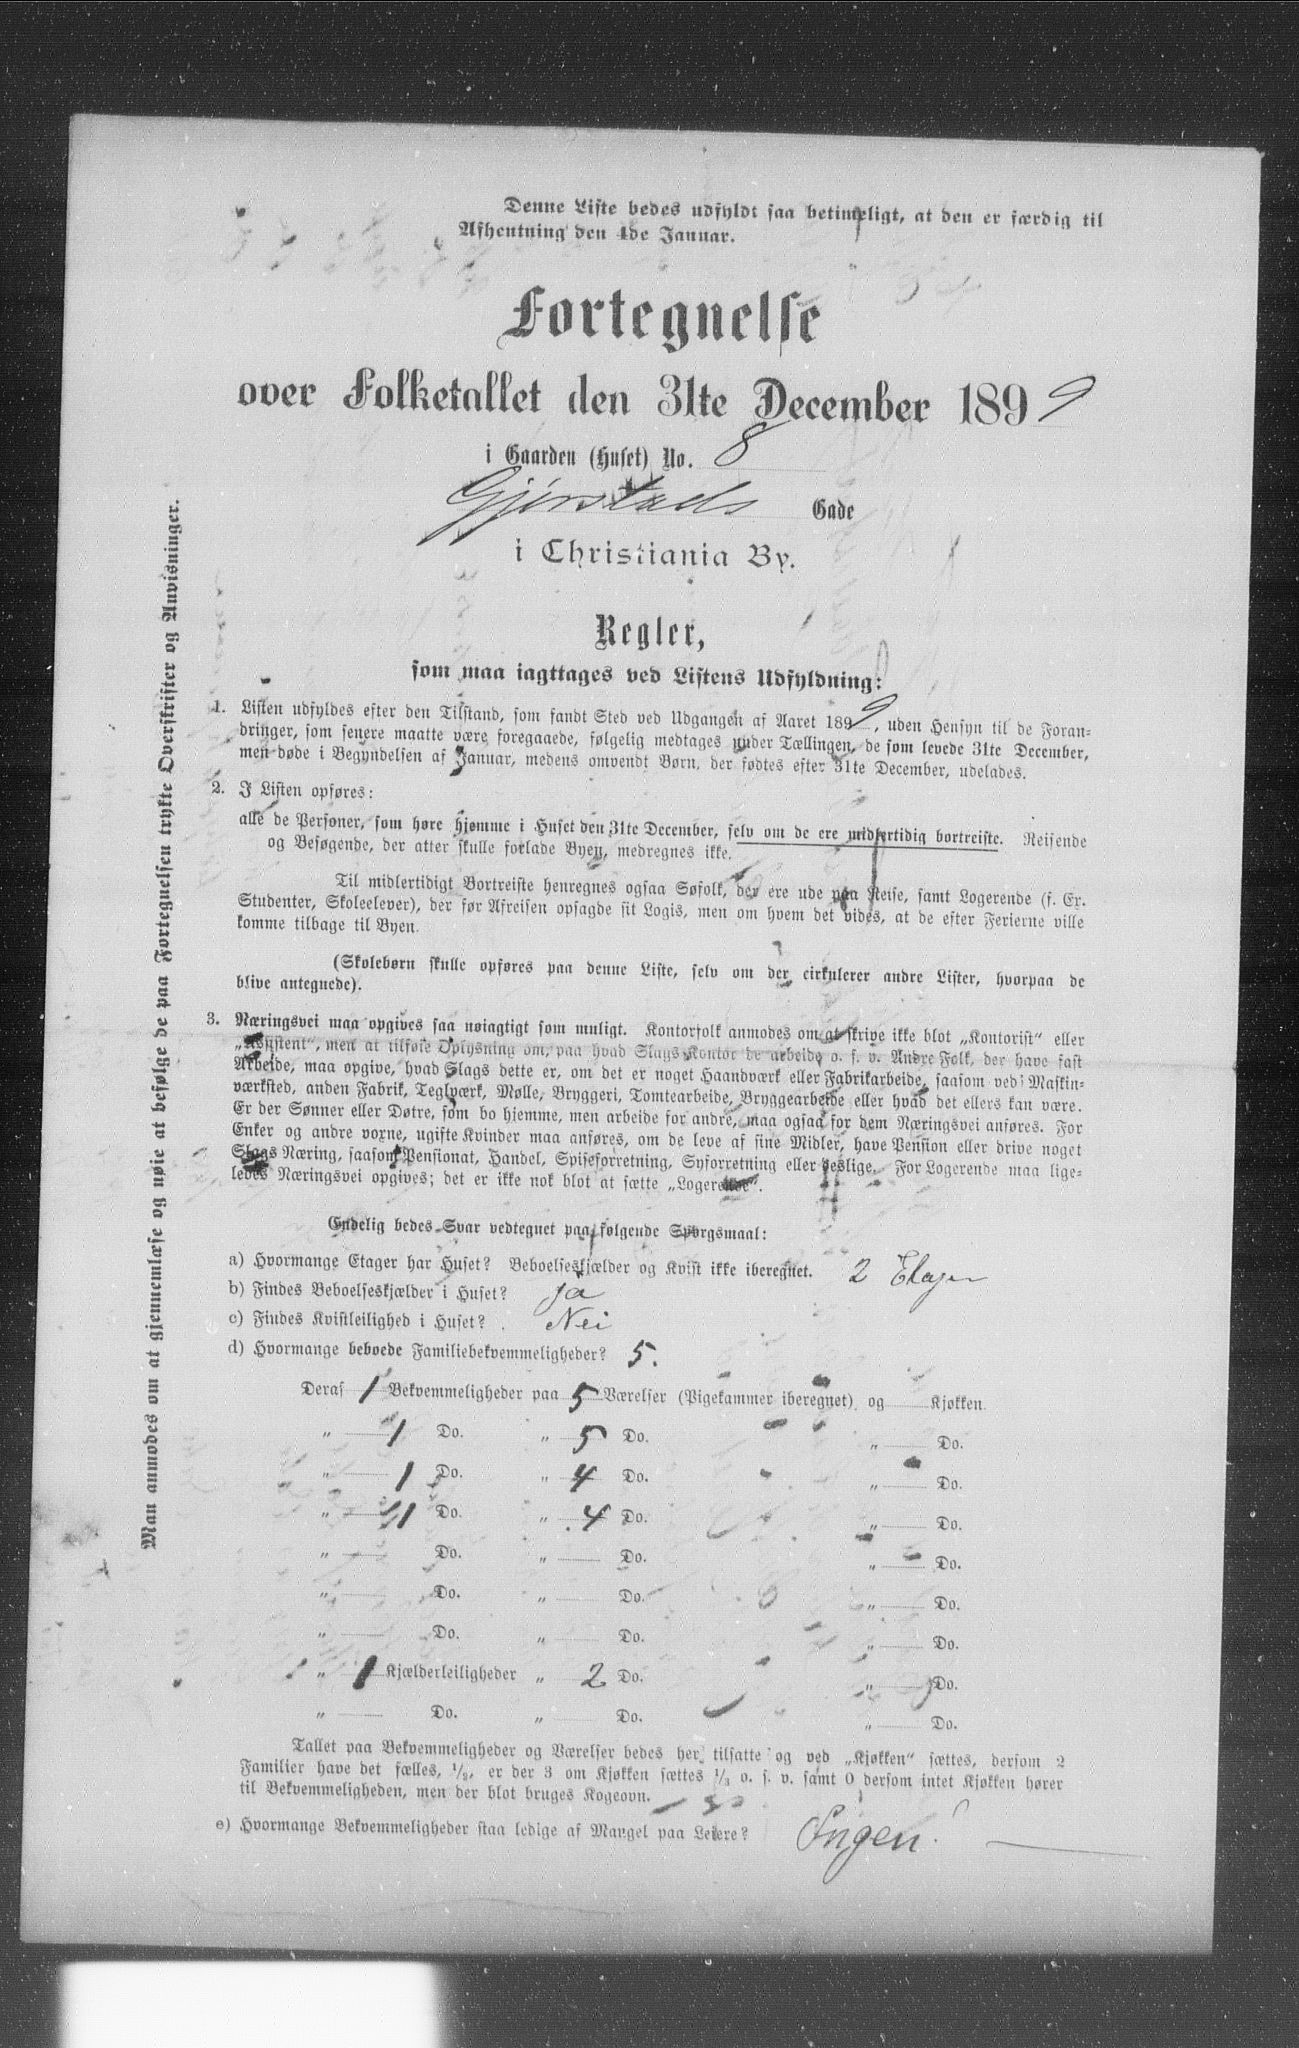 Denne Liste bedes udfyldt saa betimeligt, at den er færdig til
Afhentning den 4de Januar.
Fortegnelse
over Folketallet den 31te December 1899
i Gaarden (Huset) No. 8
Gjørstads Gade
i Christiania By.
Regler,
som maa iagttages ved Listens Udfyldning:
1. Listen udfyldes efter den Tilstand, som fandt Sted ved Udgangen af Aaret 1899, uden Hensyn til de Foran-
dringer, som senere maatte være foregaaede, følgelig medtages under Tællingen, de som levede 31te December,
men døde i Begyndelsen af Januar, medens omvendt Børn, der fødtes efter 31te December, udelades.
2. I Listen opføres:
alle de Personer, som høre hjemme i Huset den 31te December, selv om de ere midlertidig bortreiste. Reisende
og Besøgende, der atter skulle forlade Byen, medregnes ikke.
Til midlertidigt Bortreiste henregnes ogsaa Søfolk, der ere ude paa Reise, samt Logerende (f. Ex.
Studenter, Skoleelever), der før Afreisen opsagde sit Logis, men om hvem det vides, at de efter Ferierne ville
komme tilbage til Byen.
(Skolebørn skulle opføres paa denne Liste, selv om der cirkulerer andre Lister, hvorpaa de
blive antegnede).
3. Næringsvei maa opgives saa nøiagtigt som muligt. Kontorfolk anmodes om at skrive ikke blot „Kontorist“ eller
„Assistent“, men at tilføie Oplysning om, paa hvad Slags Kontor de arbeide o. s. v. Andre Folk, der have fast
Arbeide, maa opgive, hvad Slags dette er, om det er noget Haandværk eller Fabrikarbeide, saasom ved Maskin-
værksted, anden Fabrik, Teglværk, Mølle, Bryggeri, Tomtearbeide, Bryggearbeide eller hvad det ellers kan være.
Er der Sønner eller Døtre, som bo hjemme, men arbeide for andre, maa ogsaa for dem Næringsvei anføres. For
Enker og andre voxne, ugifte Kvinder maa anføres, om de leve af sine Midler, have Pension eller drive noget
Slags Næring, saasom Pensionat, Handel, Spiseforretning, Syforretning eller deslige. For Logerende maa lige-
ledes Næringsvei opgives; det er ikke nok blot at sætte „Logerende“.
Endelig bedes Svar vedtegnet paa følgende Spørgsmaal:
a) Hvormange Etager har Huset? Beboelseskjælder og Kvist ikke iberegnet. 2 Etager
b) Findes Beboelseskjælder i Huset? Ja
c) Findes Kvistleilighed i Huset? . Nei
d) Hvormange beboede Familiebekvemmeligheder? 5.
Deraf 1 Bekvemmeligheder paa 5 Værelser (Pigekammer iberegnet) og Kjøkken.
„ 1 Do. „ 5 Do. „ Do.
„ 1 Do. „ 4 Do. „ Do.
„ 1 Do. „ 4 Do. „ Do.
„ Do. „ Do. „ Do.
„ Do. „ Do. „ Do.
„ Do. „ Do. „ Do.
„ 1 Kjælderleiligheder „ 2 Do. „ Do.
„ Do. „ Do. „ Do.
Tallet paa Bekvemmeligheder og Værelser bedes her tilsatte og ved „Kjøkken“ sættes, dersom 2
Familier have det fælles, 1/2, er der 3 om Kjøkken sættes 1/3 o. s. v. samt 0 dersom intet Kjøkken hører
til Bekvemmeligheden, men der blot bruges Kogeovn.
e) Hvormange Bekvemmeligheder staa ledige af Mangel paa Leiere? Ingen.
Man anmodes om at gjennemlæse og nøie at befølge de paa Fortegnelsen trykte Overskrifter og Anvisninger.